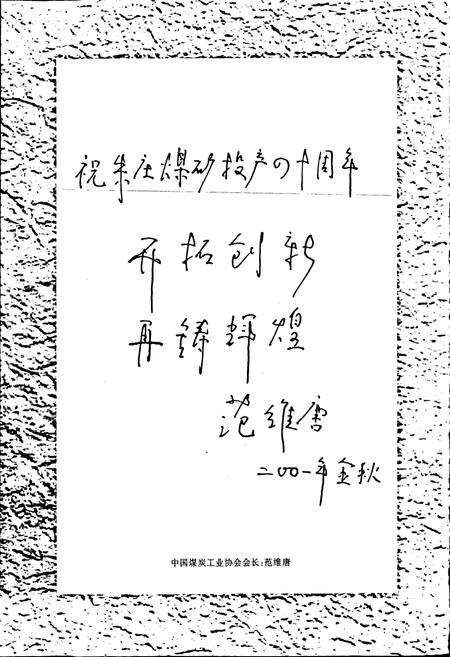 祝朱庄煤矿投产四十周年
开拓创新
再铸辉煌
范维唐
二〇〇一年金秋
中国煤炭工业协会会长:范维唐